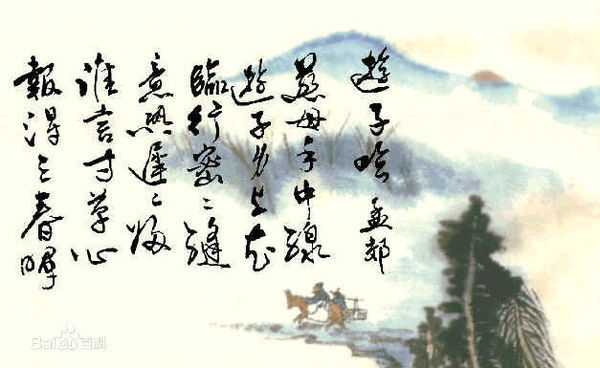 遊子吟 孟郊
慈母手中線
遊子身上衣
臨行密〻縫
意恐遲〻歸
誰言寸草心
報得三春暉
Bai百科